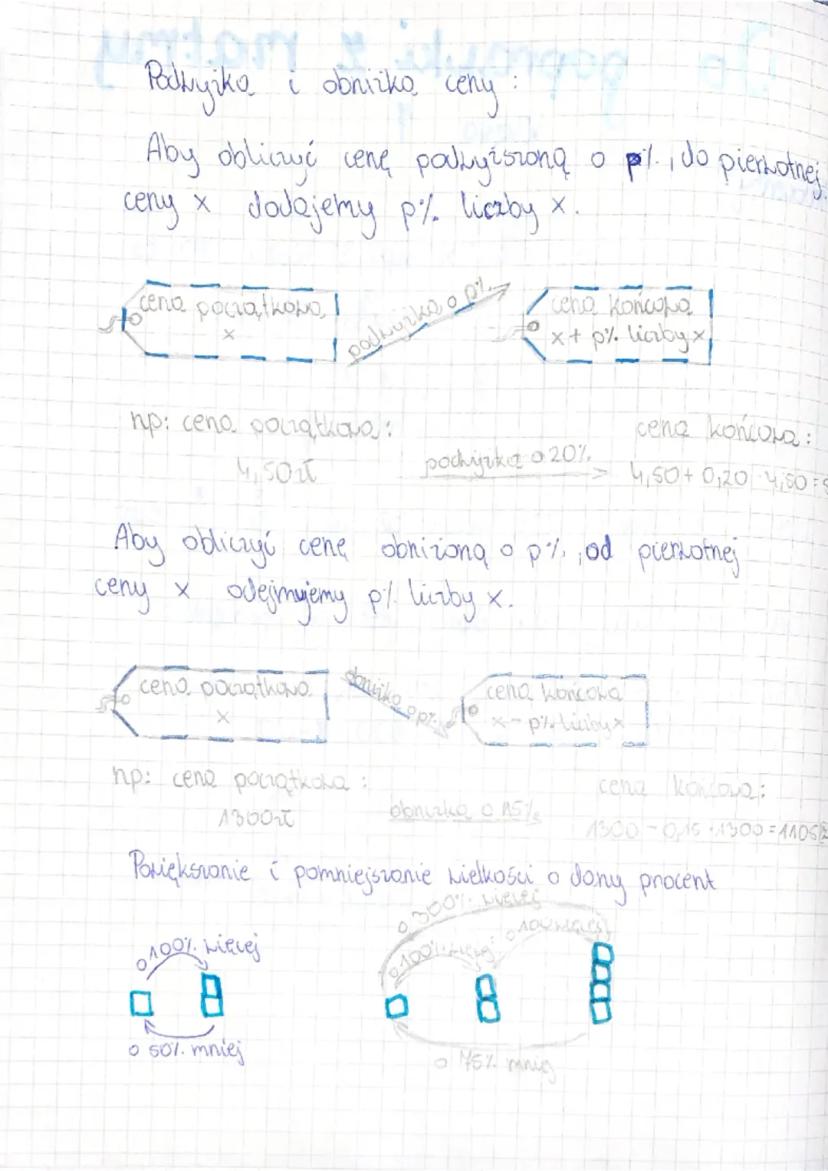 Podwyżka i obniżka ceny:
Aby obliczyć cenę podwyższoną o p%, do pierwotnej
ceny x dodajemy p% liczby x.
cena początkowa
x
podwyżka o p%
cena końcowa
x + p% liczby x
np: cena początkowa:
4,50zł
podwyżka o 20%
cena końcowa:
4,50+ 0,20 · 4,50 =
Aby obliczyć cenę obniżoną o p%, od pierwotnej
ceny x odejmujemy p% liczby x.
cena początkowa
x
obniżka o p%
cena końcowa
x - p% liczby x
np: cena początkowa:
1300zł
obniżka o 15%
cena końcowa:
1300 - 0,15 · 1300 = 1105
Powiększanie i pomniejszanie wielkości o dany procent
o 100% więcej
o 50% mniej
o 300% więcej
o 100% więcej
o 100% więcej
o 75% mniej